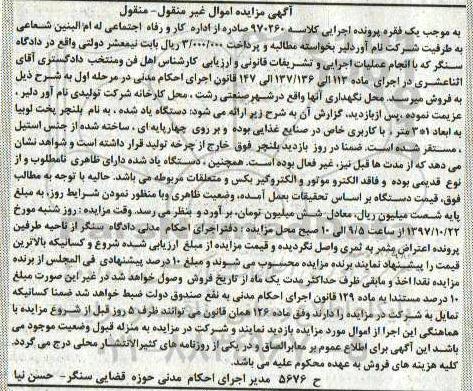 آگهی مزایده اموال غیر منقول- منقول
به موجب یک فقره پرونده اجرایی کلاسه ۹۷۰۲۶۰ صادره از اداره کار و رفاه اجتماعی له ام البنین شعاعی
به ظرفیت شرکت نام آوردلیر بخواسته مطالبه و پرداخت ۳/۰۰۰/۰۰۰ ریال بابت نیمعشر دولتی واقع در دادگاه
سنگر که با انجام عملیات اجرایی و تشریفات قانونی و ارزیابی کارشناس اهل فن ومنتخب دادگستری آقای
اثناعشری در اجرای ماده ۱۱۳ الی ۱۳۷/۱۳۶ الی ۱۴۷ قانون اجرای احکام مدنی در مرحله اول به شرح ذیل
به فروش میرسد. محل نگهداری آنها واقع درشهرصنعتی رشت ، محل کارخانه شرکت تولیدی نام آور دلیر ،
عزیمت نموده ،پس ازبازدید، گزارش آن به شرح زیر ارائه می شود: دستگاه یاد شده ، به نام بلنچر پخت لوبیا
به ابعاد ۱*۳ متر ، با کاربری خاص در صنایع غذایی بوده و بر روی چهارپایه ای ، ساخته شده از جنس استیل
، مستقر شده است. ضمنا در روز بازدید بلنچر فوق خارج از چرخه تولید قرار داشته است و شواهد نشان
می دهد که از مدت ها قبل نیز، غیر فعال بوده است. همچنین ، دستگاه یاد شده دارای ظاهری نامطلوب و از
نوع قدیمی بوده و فاقد الکترو موتور و الکتروگیر بکس و متعلقات مربوطه می باشد. حالیه با توجه به مطالب
فوق، قیمت دستگاه بر اساس تحقیقات بعمل آمده، وضعیت ظاهری وبا منظور نمودن شرایط روز، به مبلغ
پایه شصت میلیون ریال، معادل شش میلیون تومان، بر آورد و بنظر می رسد. وقت مزایده : روز شنبه مورخ
۱۳۹۷/۱۰/۲۲ از ساعت ۹/۵ الی ۱۰ صبح محل مزایده : دفتراجرای احکام مدنی دادگاه سنگر از ناحیه طرفین
پرونده اعتراض مثمر به ثمری واصل نگردیده و قیمت مزایده از مبلغ ارزیابی شده شروع و کسانیکه بالاترین
قیمت را پیشنهاد نمایند برنده مزایده محسوب می شوند و مبلغ ۱۰ درصد پیشنهادی فی المجلس از برنده
مزایده نقدا اخذ و مابقی ظرف حداکثر مدت یک ماه از تاریخ فروش وصول خواهد شد.در غیر این صورت مبلغ
۱۰ درصد مستندا به ماده ۱۲۹ قانون اجرای احکام مدنی به نفع صندوق دولت ضبط خواهد شد ضمنا کسانیکه
تمایل به شرکت در مزایده را دارند وفق ماده ۱۲۶ همان قانون می توانند ظرف ۵ روز قبل از شروع مزایده با
هماهنگی این اجرا از اموال مورد مزایده بازدید نمایند و شرکت در مزایده به منزله قبول وضعیت موجود می
باشد این آگهی برای اطلاع عموم بر معابرالصاق ودر یکی از روزنامه های کثیرالانتشار محلی درج می گردد.
کلیه هزینه های فروش به عهده محکوم علیه می باشد.
ح ۵۶۷۶ مدیر اجرای احکام مدنی حوزه قضایی سنگر- حسن نیا